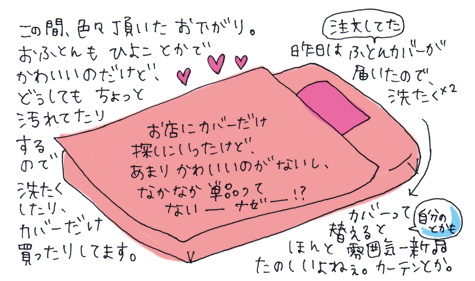 この間、色々頂いた お下がり。
おふとんも ひよこ とかで
かわいいのだけど、
どうしても ちょっと
汚れてたり
する
ので
洗たく
したり、
カバーだけ
買ったりしてます。
お店にカバーだけ
探しにいったけど、
あまり かわいいのがないし、
なかなか 単品って
ない — ナゼー!?
注文してた
昨日は ふとんカバーが
届いたので、
洗たく×2
カバーって
自分の
とかも
替えると
ほんと 雰囲気一新品
たのしいよねぇ。カーテンとか。